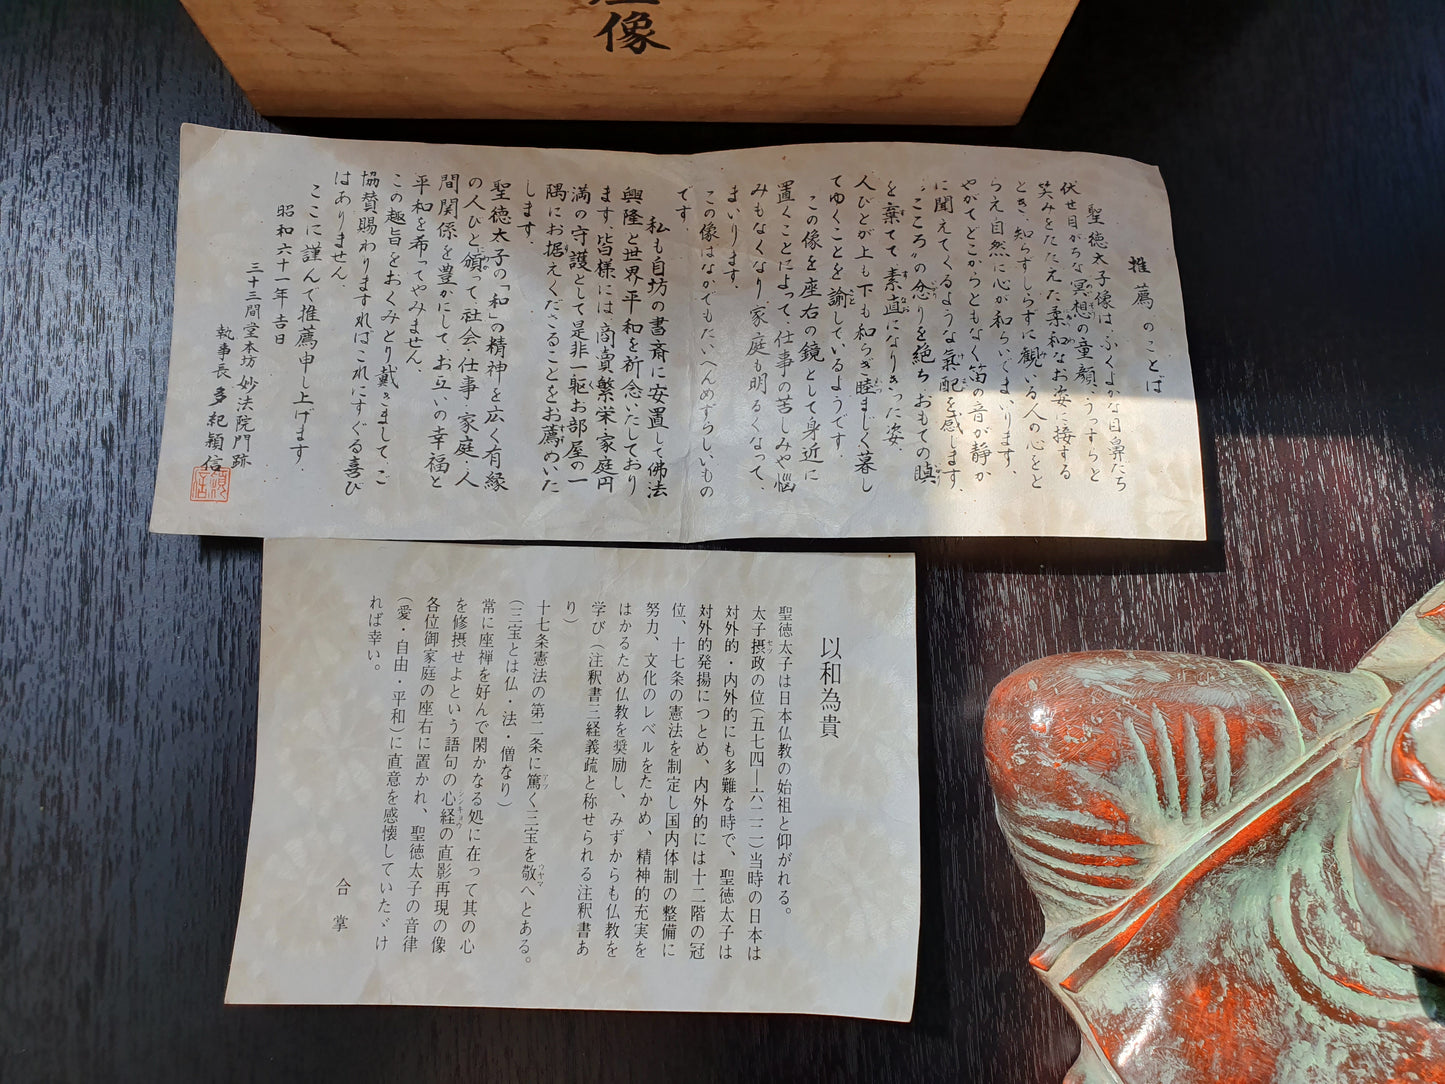 像
推薦のことば
聖徳太子像は、ふくよかな目鼻だち
伏せ目がちな冥想の童顔、うっすらと
笑みをたたえた柔和なお姿に接する
とき、知らずしらずに観いる人の心をと
らえ自然に心が和らいでまいります。
やがてどこからともなく笛の音が静か
に聞えてくるような氣配を感じます。
“こころ”の念りを絶ち、おもての瞋
を棄てて素直になりきった姿、
人びとが上も下も和らぎ睦ましく暮し
てゆくことを諭しているようです。
この像を座右の鏡として身近に
置くことによって、仕事の苦しみや悩
みもなくなり、家庭も明るくなって、
まいります。
この像はなかでもたいへんめずらしいもの
です。
私も自坊の書斎に安置して佛法
興隆と世界平和を祈念いたしており
ます。皆様には商賣繁栄・家庭円
満の守護として是非一躯お部屋の一
隅にお据えくださることをお薦めいた
します。
聖徳太子の「和」の精神を広く有縁
の人びとに頒って、社会・仕事・家庭・人
間関係を豊かにして、お互いの幸福と
平和を希ってやみません。
この趣旨をおくみとり戴きまして、ご
協賛賜わりますればこれにすぐる喜び
はありません。
ここに謹んで推薦申し上げます。
昭和六十一年吉日
三十三間堂本坊 妙法院門跡
執事長 多紀穎信
穎信
以和為貴
聖徳太子は日本仏教の始祖と仰がれる。
太子摂政の位(五七四—六二二)当時の日本は
対外的・内外的にも多難な時で、聖徳太子は
対外的発揚につとめ、内外的には十二階の冠
位、十七条の憲法を制定し国内体制の整備に
努力、文化のレベルをたかめ、精神的充実を
はかるため仏教を奨励し、みずからも仏教を
学び(注釈書三経義疏と称せられる注釈書あ
り)
十七条憲法の第二条に篤く三宝を敬へとある。
(三宝とは仏・法・僧なり)
常に座禅を好んで閑かなる処に在って其の心
を修摂せよという語句の心経の直影再現の像
各位御家庭の座右に置かれ、聖徳太子の音律
(愛・自由・平和)に直意を感懐していたゞけ
れば幸い。
合掌